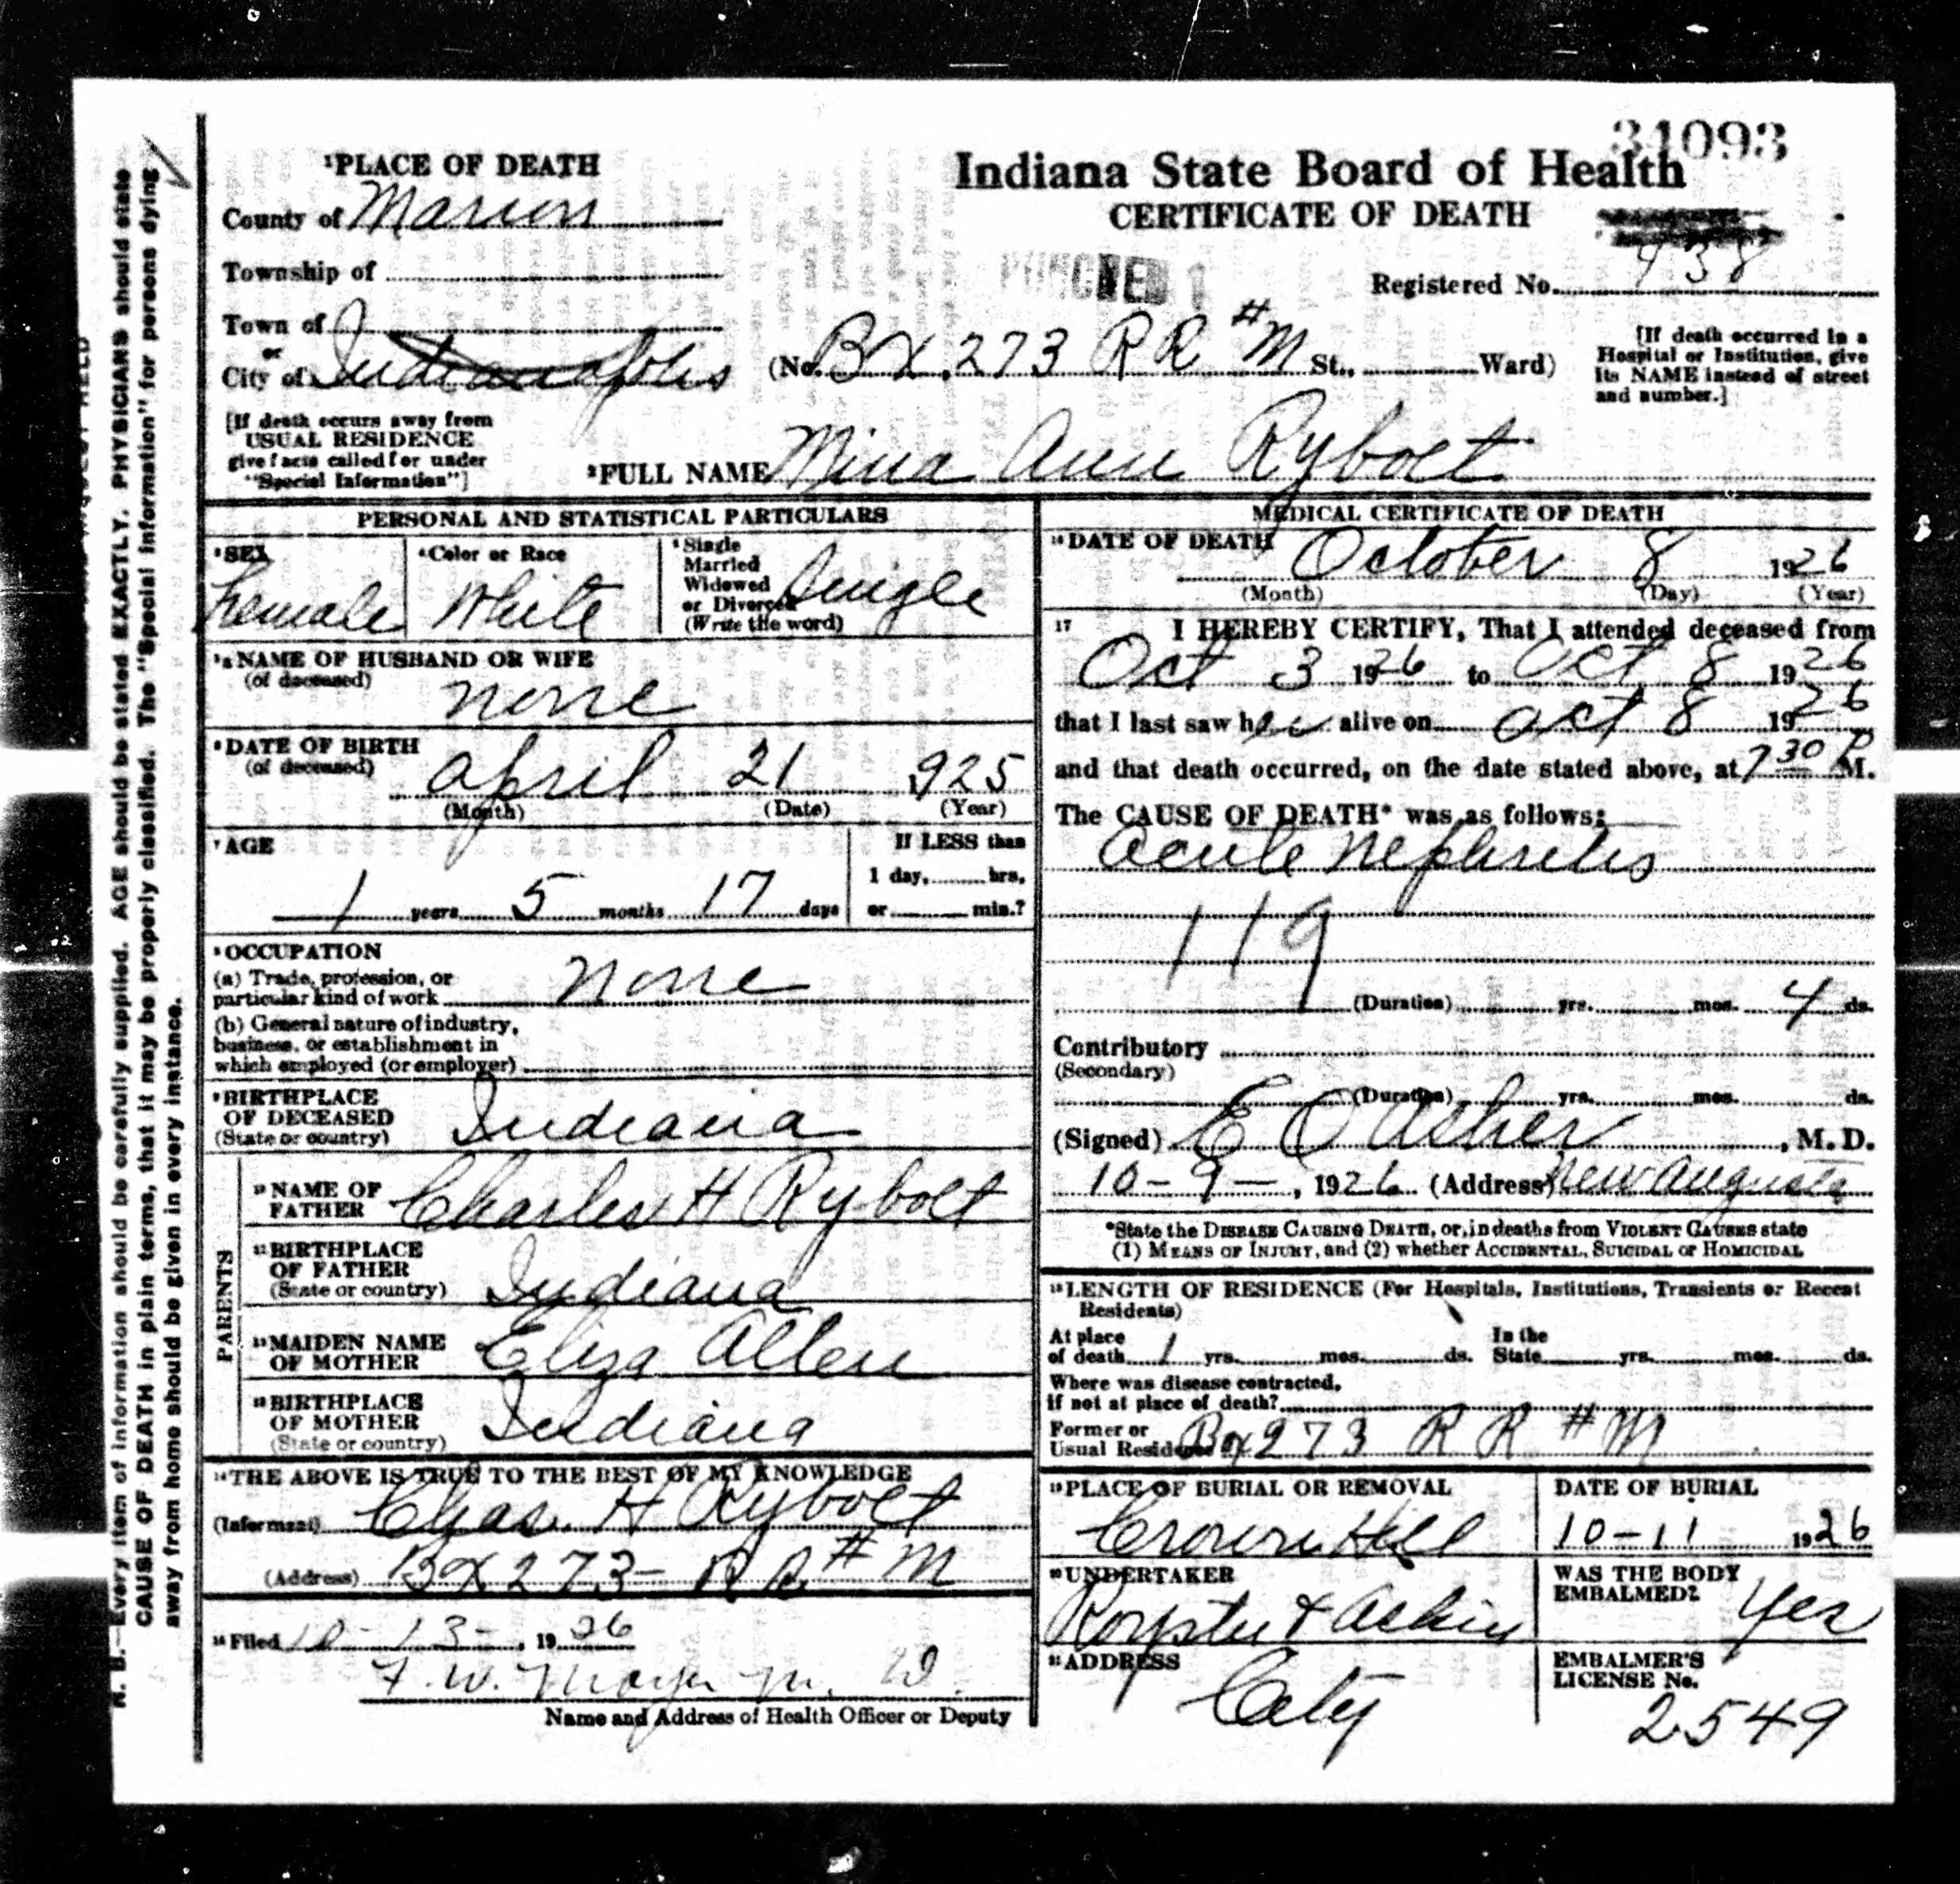 34093
Indiana State Board of Health
CERTIFICATE OF DEATH
PUNCHED 1
Registered No. 938
1 PLACE OF DEATH
County of Marion
Township of
Town of
or
City of Indianapolis
(No. BX.273 RR #M St., Ward)
[If death occurred in a
Hospital or Institution, give
its NAME instead of street
and number.]
[If death occurs away from
USUAL RESIDENCE
give facts called for under
"Special Information"]
2 FULL NAME Mina Ann Rybolt
PERSONAL AND STATISTICAL PARTICULARS
3 SEX
Female
4 Color or Race
White
5 Single
Married
Widowed
or Divorced
(Write the word)
Single
5a NAME OF HUSBAND OR WIFE
(of deceased)
none
6 DATE OF BIRTH
(of deceased)
April 21 1925
(Month) (Date) (Year)
7 AGE
1 years 5 months 17 days
If LESS than
1 day, hrs.
or min.?
8 OCCUPATION
(a) Trade, profession, or
particular kind of work none
(b) General nature of industry,
business, or establishment in
which employed (or employer)
9 BIRTHPLACE
OF DECEASED
(State or country)
Indiana
PARENTS
10 NAME OF
FATHER
Charles H Rybolt
11 BIRTHPLACE
OF FATHER
(State or country)
Indiana
12 MAIDEN NAME
OF MOTHER
Eliza Allen
13 BIRTHPLACE
OF MOTHER
(State or country)
Indiana
14 THE ABOVE IS TRUE TO THE BEST OF MY KNOWLEDGE
(Informant) Chas. H Rybolt
(Address) BX 273- RR # M
15 Filed 10-13-, 1926
F. W. Mayer M. D.
Name and Address of Health Officer or Deputy
MEDICAL CERTIFICATE OF DEATH
16 DATE OF DEATH
October 8 1926
(Month) (Day) (Year)
17 I HEREBY CERTIFY, That I attended deceased from
Oct 3 1926 to Oct 8 1926
that I last saw her alive on Oct 8 1926
and that death occurred, on the date stated above, at 7 30 P M.
The CAUSE OF DEATH* was as follows:
Acute Nephritis
119
(Duration) yrs. mos. 4 ds.
Contributory
(Secondary)
(Duration) yrs. mos. ds.
(Signed) E O Asher, M. D.
10-9-, 1926 (Address) New Augusta
*State the DISEASE CAUSING DEATH, or, in deaths from VIOLENT CAUSES state
(1) MEANS OF INJURY, and (2) whether ACCIDENTAL, SUICIDAL or HOMICIDAL
18 LENGTH OF RESIDENCE (For Hospitals, Institutions, Transients or Recent
Residents)
At place
of death 1 yrs. mos. ds.
In the
State yrs. mos. ds.
Where was disease contracted,
if not at place of death?
Former or
Usual Residence Bx 273 RR # M
19 PLACE OF BURIAL OR REMOVAL
Crown Hill
DATE OF BURIAL
10-11 1926
20 UNDERTAKER
Royster & Askin
WAS THE BODY
EMBALMED?
Yes
21 ADDRESS
City
EMBALMER'S
LICENSE No.
2549
N. B.—Every item of information should be carefully supplied. AGE should be stated EXACTLY. PHYSICIANS should state
CAUSE OF DEATH in plain terms, that it may be properly classified. The "Special information" for persons dying
away from home should be given in every instance.